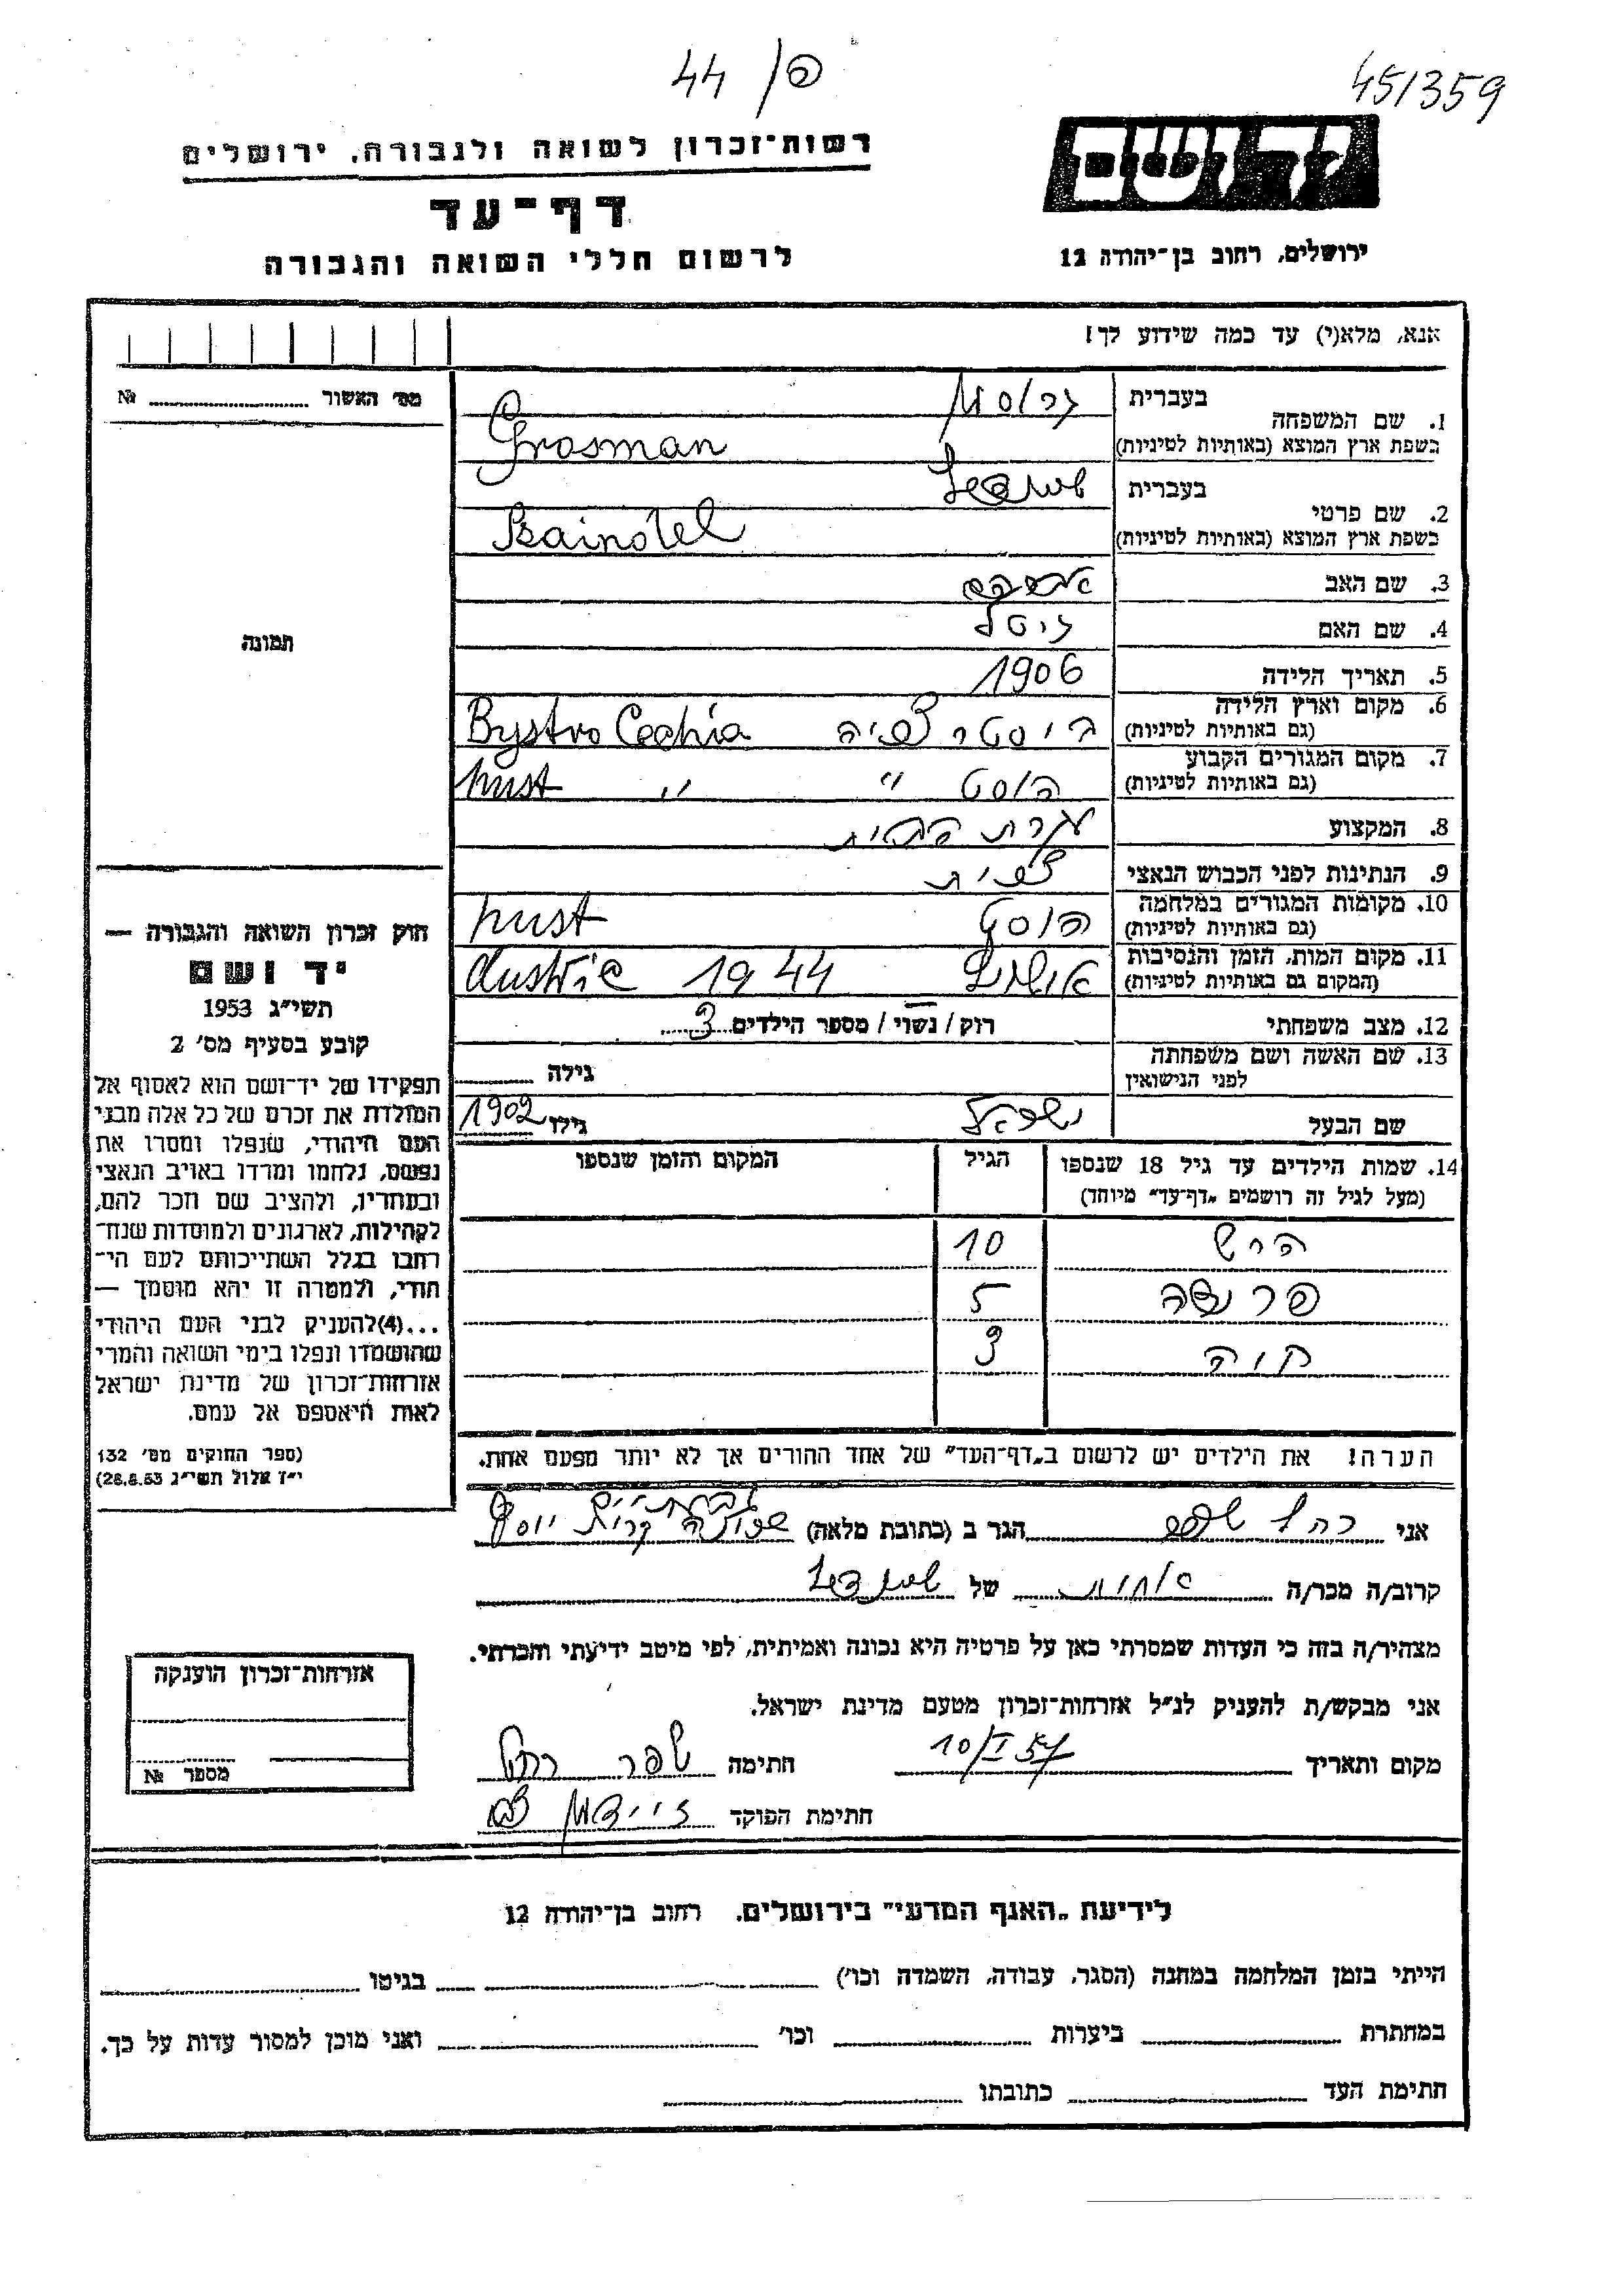 פ/44
45/359
יד ושם
רשות־זכרון לשואה ולגבורה, ירושלים
דף־עד
לרשום חללי השואה והגבורה
ירושלים, רחוב בן־יהודה 12
אנא, מלא(י) עד כמה שידוע לך!
מס׳ האשור № 
1. שם המשפחה
בעברית גרוסמן
בשפת ארץ המוצא (באותיות לטיניות) Grosman
2. שם פרטי
בעברית
בשפת ארץ המוצא (באותיות לטיניות)
3. שם האב אברהם
4. שם האם גיטל
5. תאריך הלידה 1906
6. מקום וארץ הלידה
(גם באותיות לטיניות) ביסטרי צכיה Bystro Cechia
7. מקום המגורים הקבוע
(גם באותיות לטיניות) הוסט " hust "
8. המקצוע עקרת הבית
9. הנתינות לפני הכבוש הנאצי צכית
10. מקומות המגורים במלחמה
(גם באותיות לטיניות) הוסט hust
11. מקום המות, הזמן והנסיבות
(המקום גם באותיות לטיניות) 1944
12. מצב משפחתי רווק / נשוי / מספר הילדים 3
13. שם האשה ושם משפחתה
לפני הנישואין גילה
שם הבעל ישראל גילו 1902
14. שמות הילדים עד גיל 18 שנספו
(מעל לגיל זה רושמים „דף־עד” מיוחד)
הגיל
המקום והזמן שנספו
הרש 10
5
3
הערה! את הילדים יש לרשום ב„דף־העד” של אחד ההורים אך לא יותר מפעם אחת.
תמונה
חוק זכרון השואה והגבורה —
יד ושם
תשי״ג 1953
קובע בסעיף מס׳ 2
תפקידו של יד־ושם הוא לאסוף אל
המולדת את זכרם של כל אלה מבני
העם היהודי, שנפלו ומסרו את
נפשם, נלחמו ומרדו באויב הנאצי
ובעוזריו, ולהציב שם וזכר להם,
לקהילות, לארגונים ולמוסדות שנח־
רבו בגלל השתייכותם לעם הי־
הודי, ולמטרה זו יהא מוסמך —
...(4)להעניק לבני העם היהודי
שהושמדו ונפלו בימי השואה והמרי
אזרחות־זכרון של מדינת ישראל
לאות היאספם אל עמם.
(ספר החוקים מס׳ 132
י״ז אלול תשי״ג 28.8.53)
אני רחל שפר הגר ב (כתובת מלאה) גבעתיים שכונה קרית יוסף
קרוב/ה מכר/ה אחות של
מצהיר/ה בזה כי העדות שמסרתי כאן על פרטיה היא נכונה ואמיתית, לפי מיטב ידיעתי והכרתי.
אני מבקש/ת להעניק לנ״ל אזרחות־זכרון מטעם מדינת ישראל.
מקום ותאריך 10/I 57 חתימה שפר רחל
חתימת הפוקד
אזרחות־זכרון הוענקה
מספר №
לידיעת „האגף המדעי” בירושלים, רחוב בן־יהודה 12
הייתי בזמן המלחמה במחנה (הסגר, עבודה, השמדה וכו׳) בגיטו
במחתרת ביערות וכו׳ ואני מוכן למסור עדות על כך.
חתימת העד כתובתו